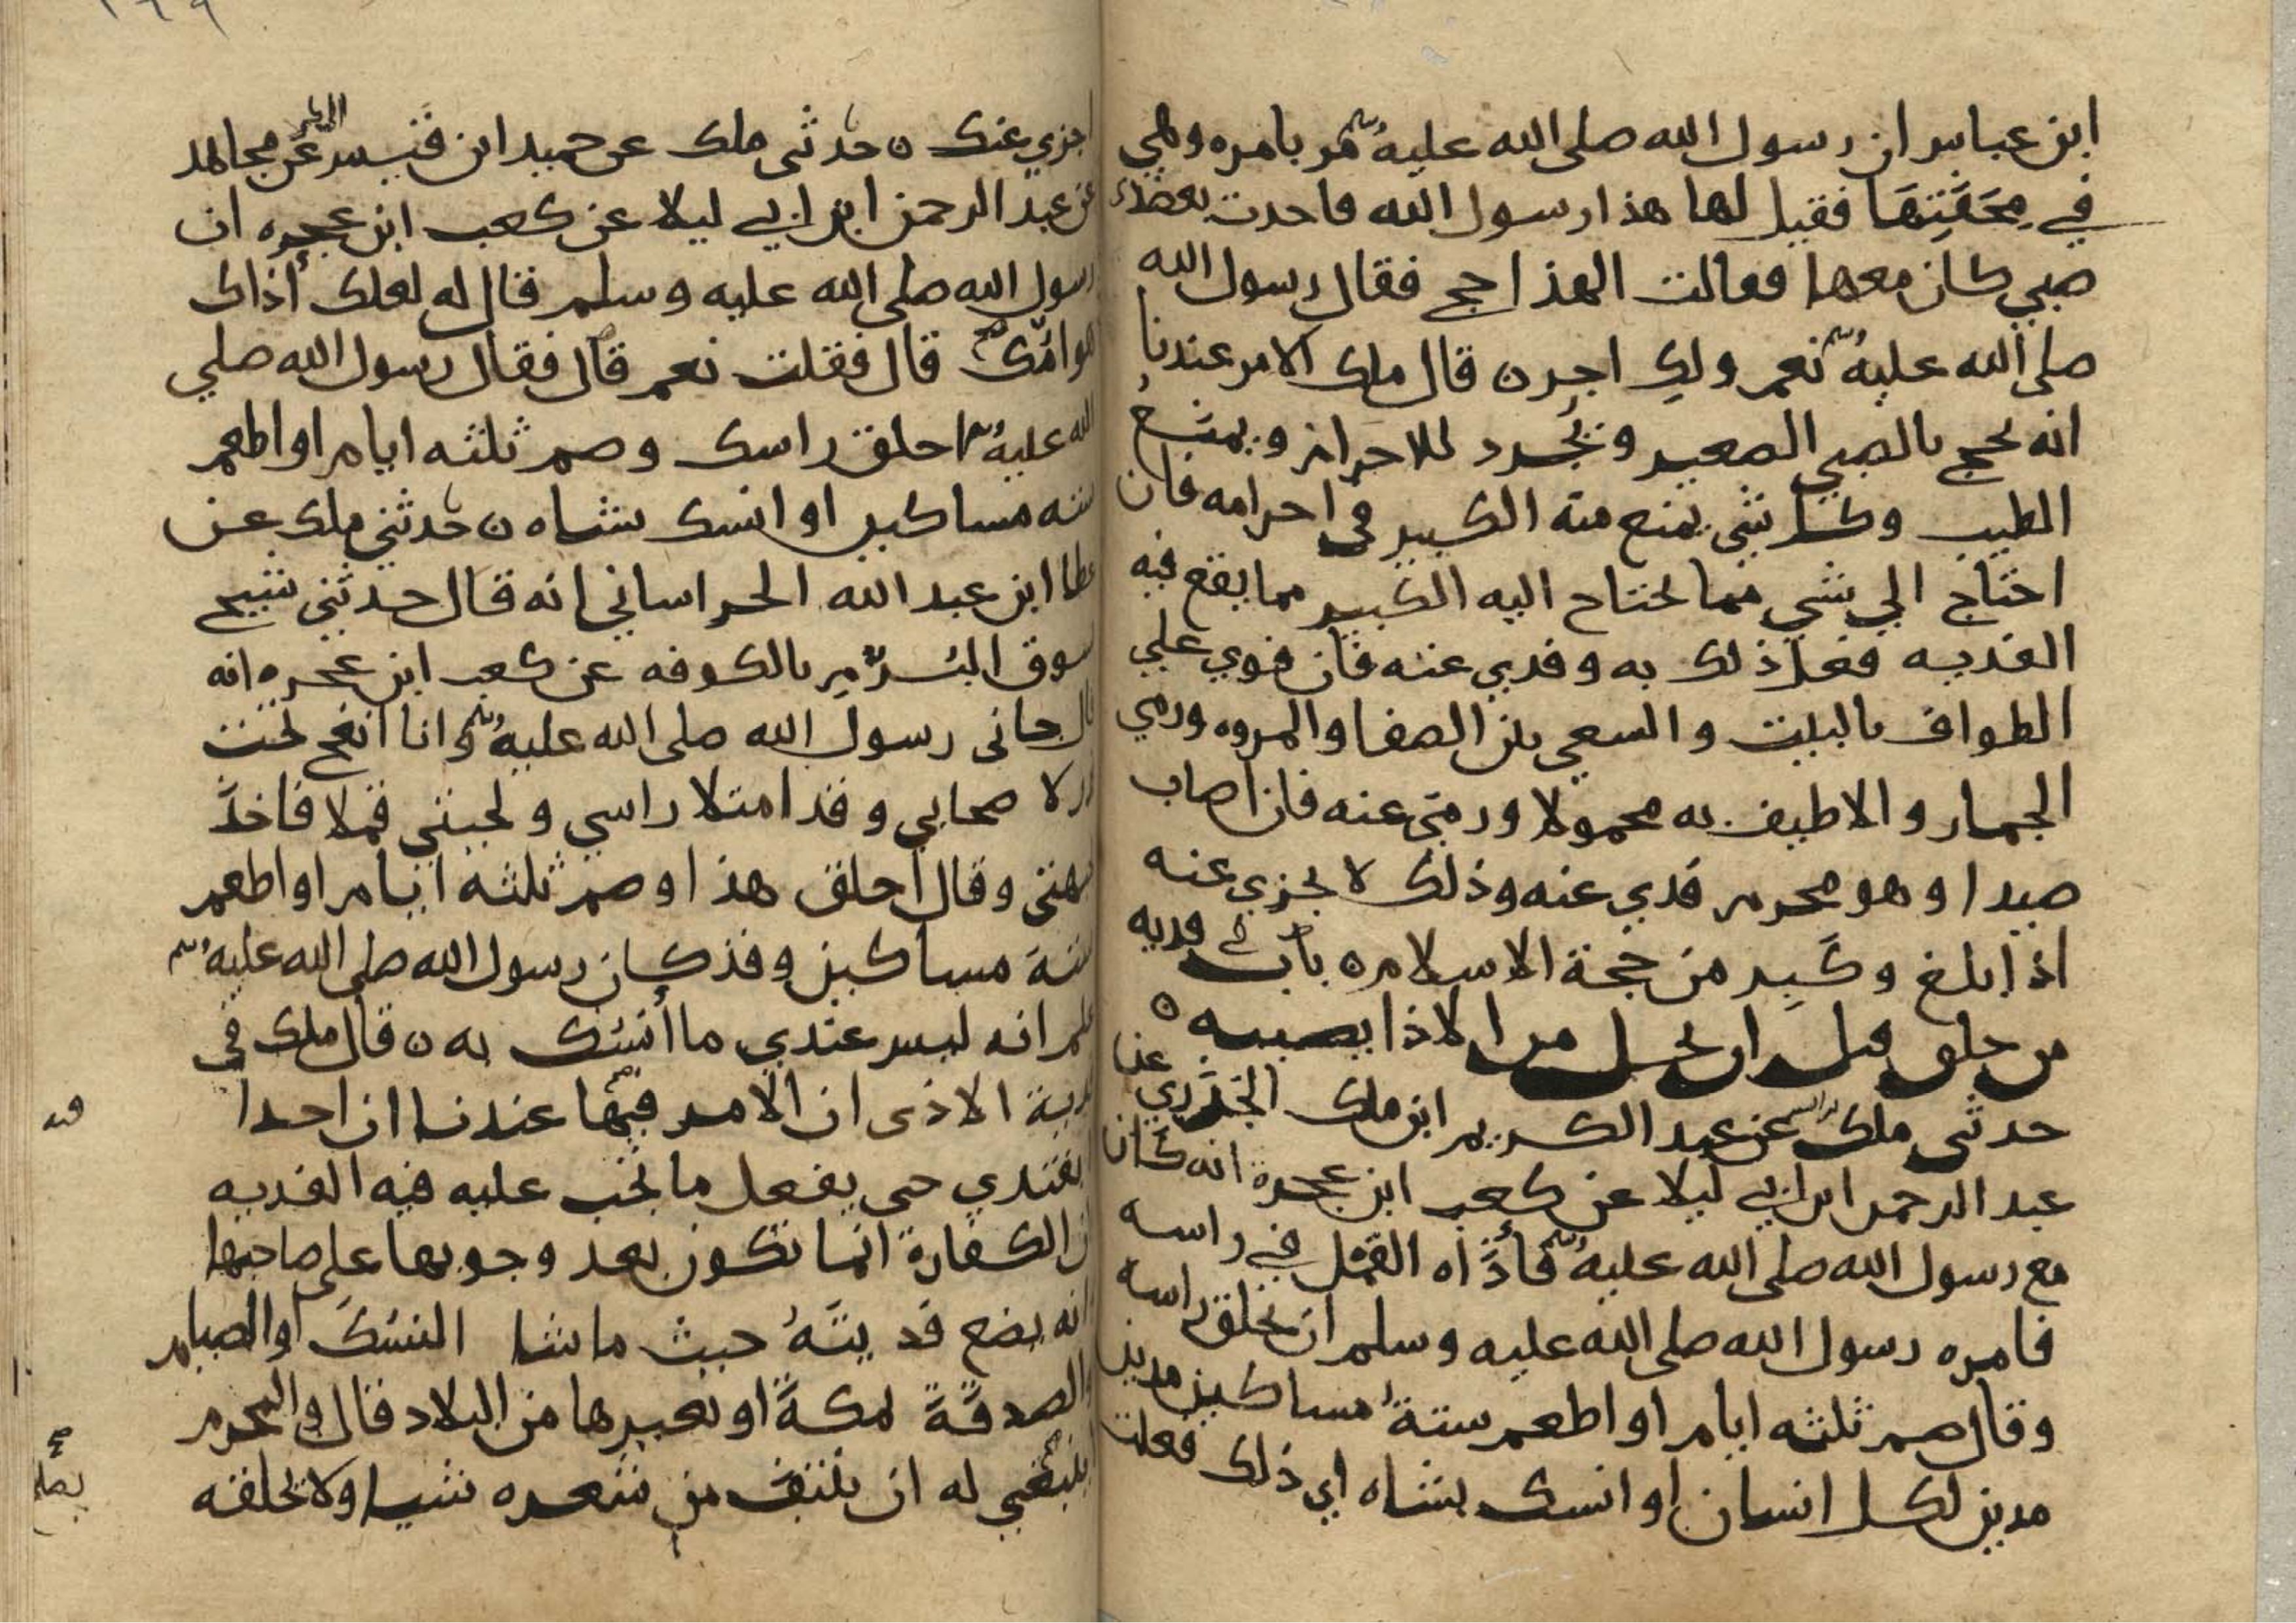 ابن عباس ان رسول الله صلى الله عليه مر بامره وهي
في محفتها فقيل لها هذا رسول الله فاخدت بعضد
صبي كان معها فقالت الهذا حج فقال رسول الله
صلى الله عليه نعم ولك اجر ن قال ملك الامر عندنا
انه يحج بالصبي الصغير ويجرد للاحرام ويمنع
الطيب وكل شي يمنع منه الكبير في احرامه فان
احتاج الي شي مما يحتاج اليه الكبير مما يقع فيه
الفديه فعل ذلك به وفدي عنه فان قوي علي
الطواف بالبيت والسعي بين الصفا والمروه ورمي
الجمار والا طيف به محمولا ورمي عنه فان اصاب
صيدا وهو محرم فدي عنه وذلك لا يجزي عنه
اذا بلغ وكبر من حجة الاسلام ه باب في فديه
من حلق قبل ان يحل من الاذا يصيبه ه
حدثني ملك عن عبد الكريم ابن ملك الجزري عن
عبد الرحمن ابن ابي ليلا عن كعب ابن عجرة انه كان
مع رسول الله صلى الله عليه فأذاه القمل في راسه
فامره رسول الله صلى الله عليه وسلم ان يحلق راسه
وقال صم ثلثه ايام او اطعم ستة مساكين مدين
مدين لكل انسان او انسك بشاه اي ذلك فعلت
اجزي عنك ن حدثني ملك عن حميد ابن قيس عن مجاهد
عن عبد الرحمن ابن ابي ليلا عن كعب ابن عجره ان
رسول الله صلى الله عليه وسلم قال له لعلك أذاك
هوامك قال فقلت نعم قال فقال رسول الله صلي
الله عليه احلق راسك وصم ثلثه ايام او اطعم
سته مساكين او انسك بشاه ن حدثني ملك عن
عطا ابن عبد الله الخراساني انه قال حدثني شيخ
بسوق البرم بالكوفه عن كعب ابن عجره انه
قال جاني رسول الله صلى الله عليه وانا انفخ تحت
قدر لا صحابي وقد امتلا راسي ولحيتي قملا فاخذ
بجبهتي وقال احلق هذا وصم ثلثه ايام او اطعم
ستة مساكين وقد كان رسول الله صلى الله عليه
علم انه ليس عندي ما أنسك به ن قال ملك في
فدية الاذى ان الامر فيها عندنا ان احدا
لا يفتدي حتى يفعل ما يجب عليه فيه الفديه
وان الكفارة انما تكون بعد وجوبها على صاحبها
وانه يضع فديته حيث ما شا النسك او الصيام
او الصدقة بمكة او بغيرها من البلاد قال والمحرم
لا ينبغي له ان ينتف من شعره شيا ولا يحلقه